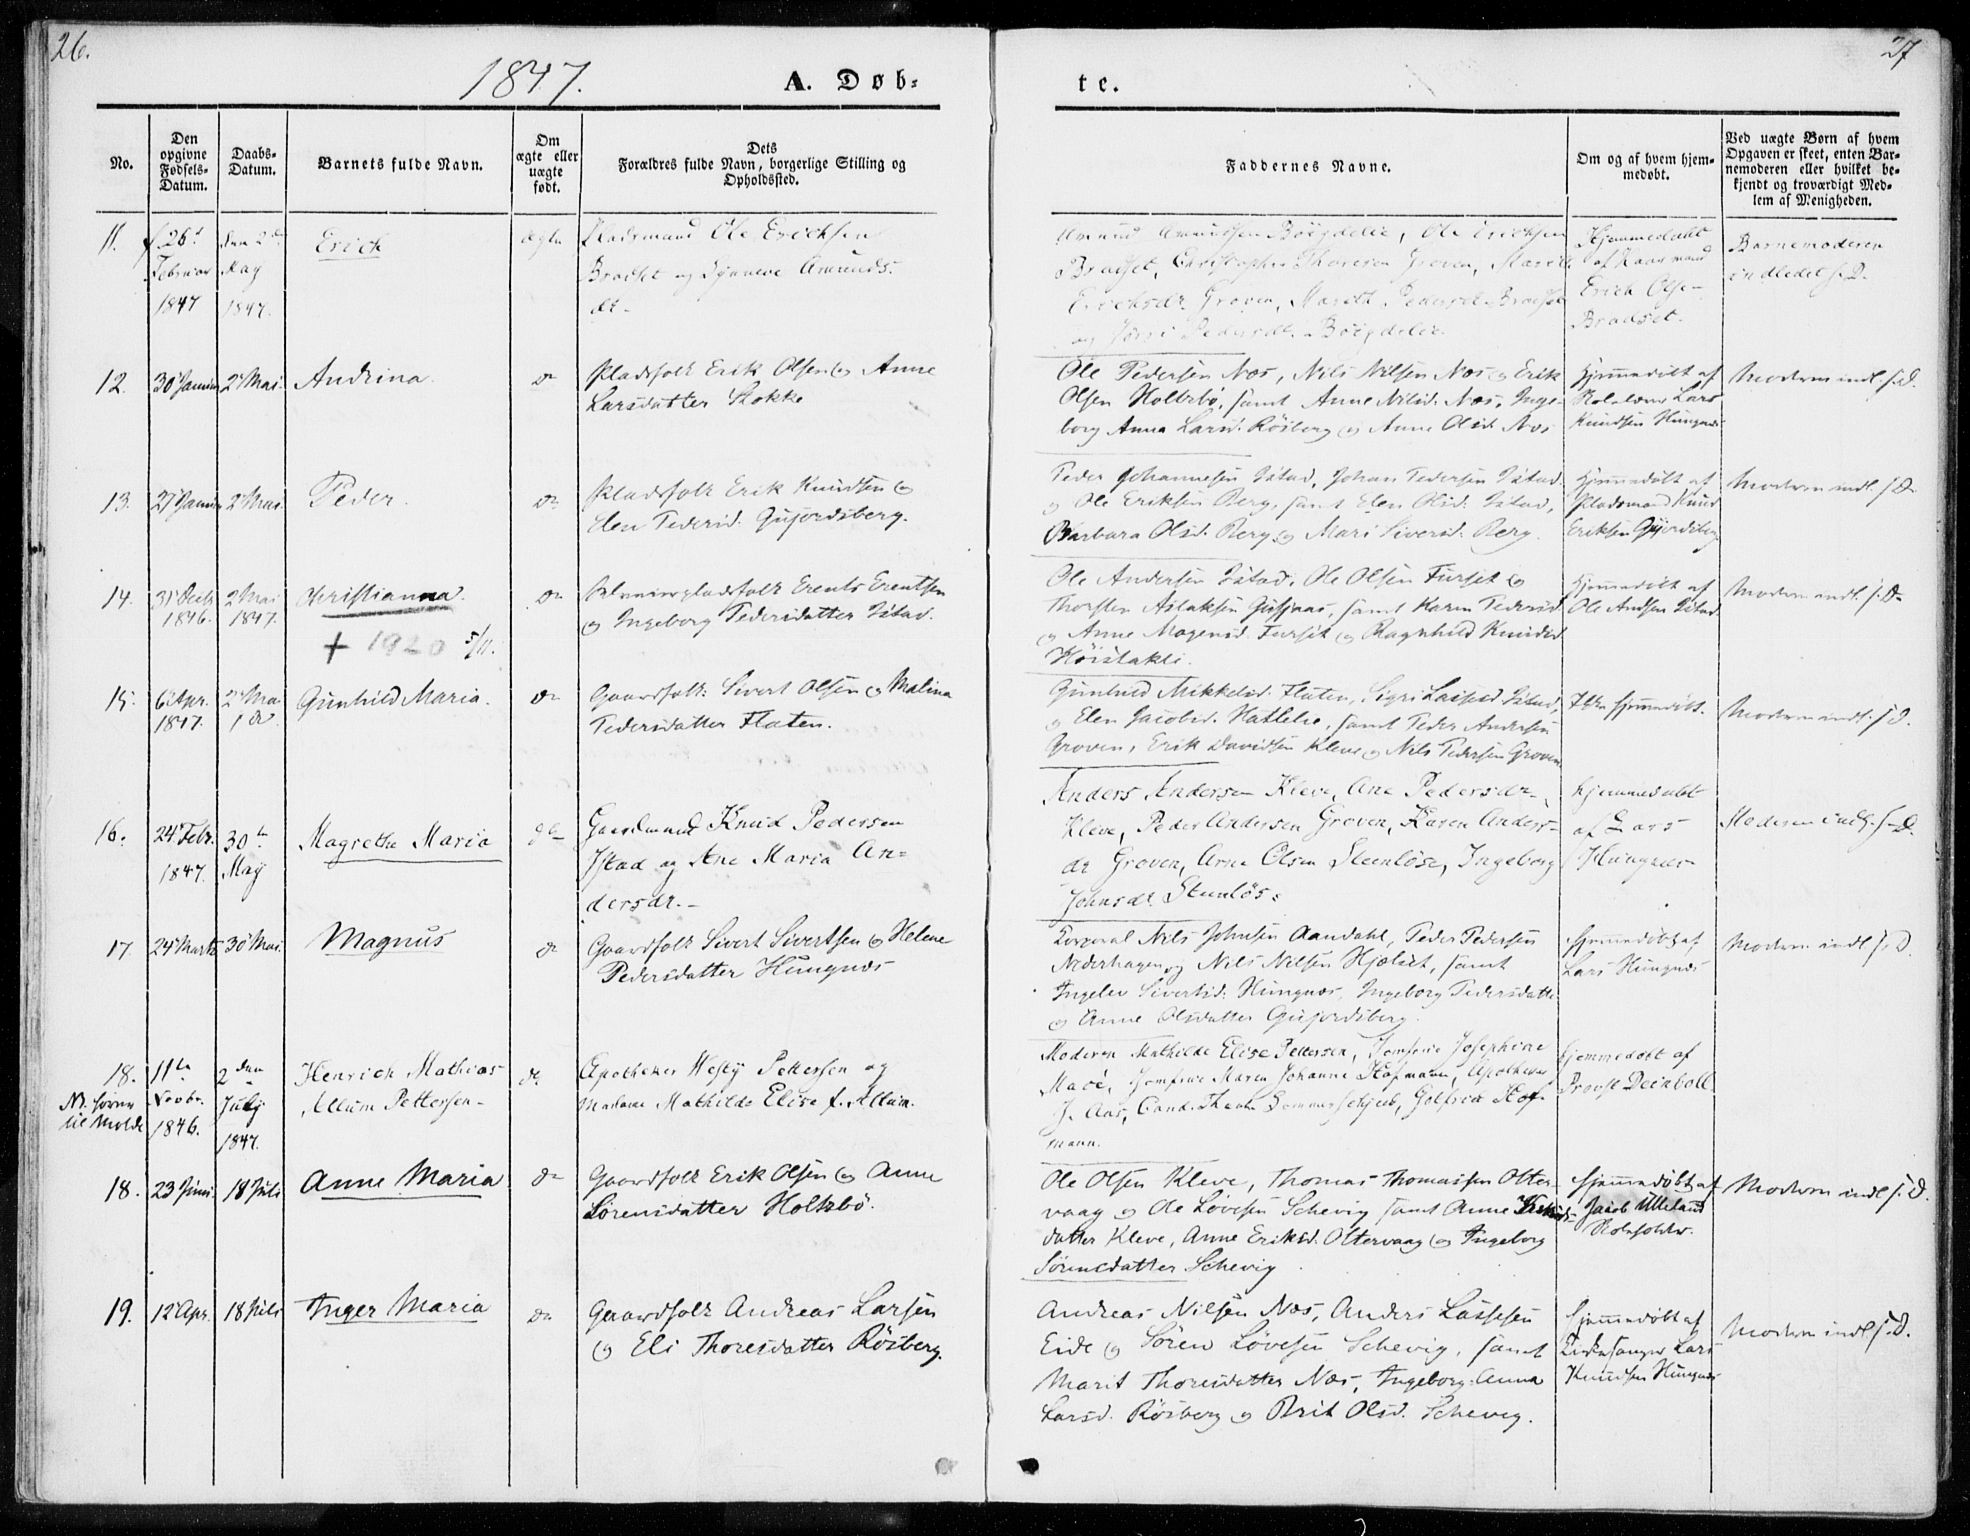 26.
27
1847.
A. Døb-
te.
No.
Den
opgivne
Fødsels-
Datum.
Daabs-
Datum.
Barnets fulde Navn.
Om
ægte eller
uægte
født.
Dets
Forældres fulde Navn, borgerlige Stilling og
Opholdssted.
Faddernes Navne.
Om og af hvem hjem-
medøbt.
Ved uægte Børn af hvem
Opgaven er skeet, enten Bar-
nemoderen eller hvilket be-
kjendt og troværdigt Med-
lem af Menigheden.
11.
26
Februar
1847
den 2
May
1847.
Erich
ægte
Pladsmand Ole Erichsen
Bradset og Synneve Amunds-
dr.
Amund Amundsen Böigdelie, Ole Erichsen
Bradset, Christopher Thoresen Groven, Mareth
Ericksdr. Groven, Mareth Pedersdr. Bradset
og Pedersdr. Böigdelie
Hjemmedøbt
af Gaardmand
Erich Olsen
Bradset.
Barnemoderen
indledet s. D.
12.
30 Januar
2 Mai.
Andrina.
do
Pladsfolk Erik Olsen og Anne
Larsdatter Stokke
Ole Pedersen Næs, Nils Nilsen Næs og Erik
Olsen Holtebö, samt Anne Nilsd. Næs, Inge-
borg Anna Larsd. Rösberg og Anne Olsd. Næs
Hjemmedöbt af
Skolelærer Lars
Knudsen Hungnæs
Moderen indl. s. D.
13.
27 Januar
2 Mai.
Peder.
do
Pladsfolk Erik Knudsen og
Elen Pedersd. Gujordsberg.
Peder Johannesen Istad, Johan Pedersen Istad
og Ole Eriksen Berg, samt Elen Olsd. Istad,
Barbara Olsd. Berg og Mari Siversd. Berg.
Hjemmedøbt af
Pladsmand Knud
Eriksen Gujordsberg
Moderen indl. s. D.
14.
31 Decb.
1846.
2 Mai
1847.
Christianna.
+ 1920 5/11.
do
Erents Erentsen
og Ingeborg Pedersdatter Istad.
Ole Andersen Istad, Ole Olsen Furset og
Thorsten Aslaksen Gusjaas, samt Karen Pedersd.
og Anne Mogensd. Furset og Ragnhild Knudsd.
Höistakli.
Hjemmedöbt af
Ole Andsen Istad
Moderen indl. s. D.
15.
6 Apr.
1847.
2 Mai
Gunhild Maria.
do
Gaardfolk: Sivert Olsen og Malina
Pedersdatter Flaten.
Gunhild Mikkelsd. Flaten, Sigri Lassesd. Istad,
og Elen Jacobsd. Hatlelie, samt Peder Andersen
Groven, Erik Davidsen Kleve og Nils Pedersen Groven
Ikke hjemmedöbt.
Moderen indl. s. D.
16.
24 Febr.
1847.
30te
May
Magrethe Maria
do
Gaardmand Knud Pedersen
Istad og Ane Maria An-
dersdr.-
Anders Andersen Kleve, Ane Pedersdr.
Kleve, Peder Andersen Groven, Karen Anders-
dr Groven, Arne Olsen Steenløse, Ingeborg
Johnsdr. Stenløs.
hjemmedøbt
af Lars
Hungnæs
Moderen indl. s. D.
17.
24 Marts
30 Mai.
Magnus
do
Gaardfolk Sivert Sivertsen og Helene
Pedersdatter Hungnæs
Corporal Nils Johnsen Aandahl, Peder Pedersen
Nederhagen og Nils Nilsen Hjelset, samt
Ingelev Sivertsd. Hungnæs, Ingeborg Pedersdatter
og Anne Olsdatter Gujordsberg.
hjemmedøbt af
Lars Hungnæs
Moderen indl. s. D.
18.
til Molde
11te
Novbr.
1846.
2den
July
1847.
Henrich Mathias
Allum Pettersen-
do
Apotheker Pettersen og
Madame Mathilde Elise f. Allum.
Moderen Mathilde Elise Pettersen, Jomfrue Josephine
Macé, Jomfrue Maren Johanne Hofmann, Apotheker
J. Aas, Cand. Hof-
mann.
hjemmedøbt af
Provst Deinboll
18.
23 Juni.
18 Juli
Anne Maria
do
Gaardfolk Erik Olsen og Anne
Sörensdatter Holtebö.
Ole Olsen Kleve, Thomas Thomassen Otter-
vaag og Ole Lövesen Schevig samt Anne
datter Kleve, Anne Eriksd. Ottervaag og Ingeborg
Sörensdatter Schevig
hjemmedøbt af
Jacob Ulleland
Skoleholder.
Moderen indl s. D.
19.
12 Apr.
18 Juli
Inger Maria
do
Gaardfolk Andreas Larsen
og Eli Thoresdatter Rösberg.
Andreas Nilsen Næs, Anders Lassesen
Eide og Sören Lövesen Schevig, samt
Marit Thoresdatter Næs, Ingeborg Anna
Larsd. Rösberg og Brit Olsd. Schevig.
hjemmedøbt af
Kirkesanger Lars
Knudsen Hungnæs
Moderen indl s. D.